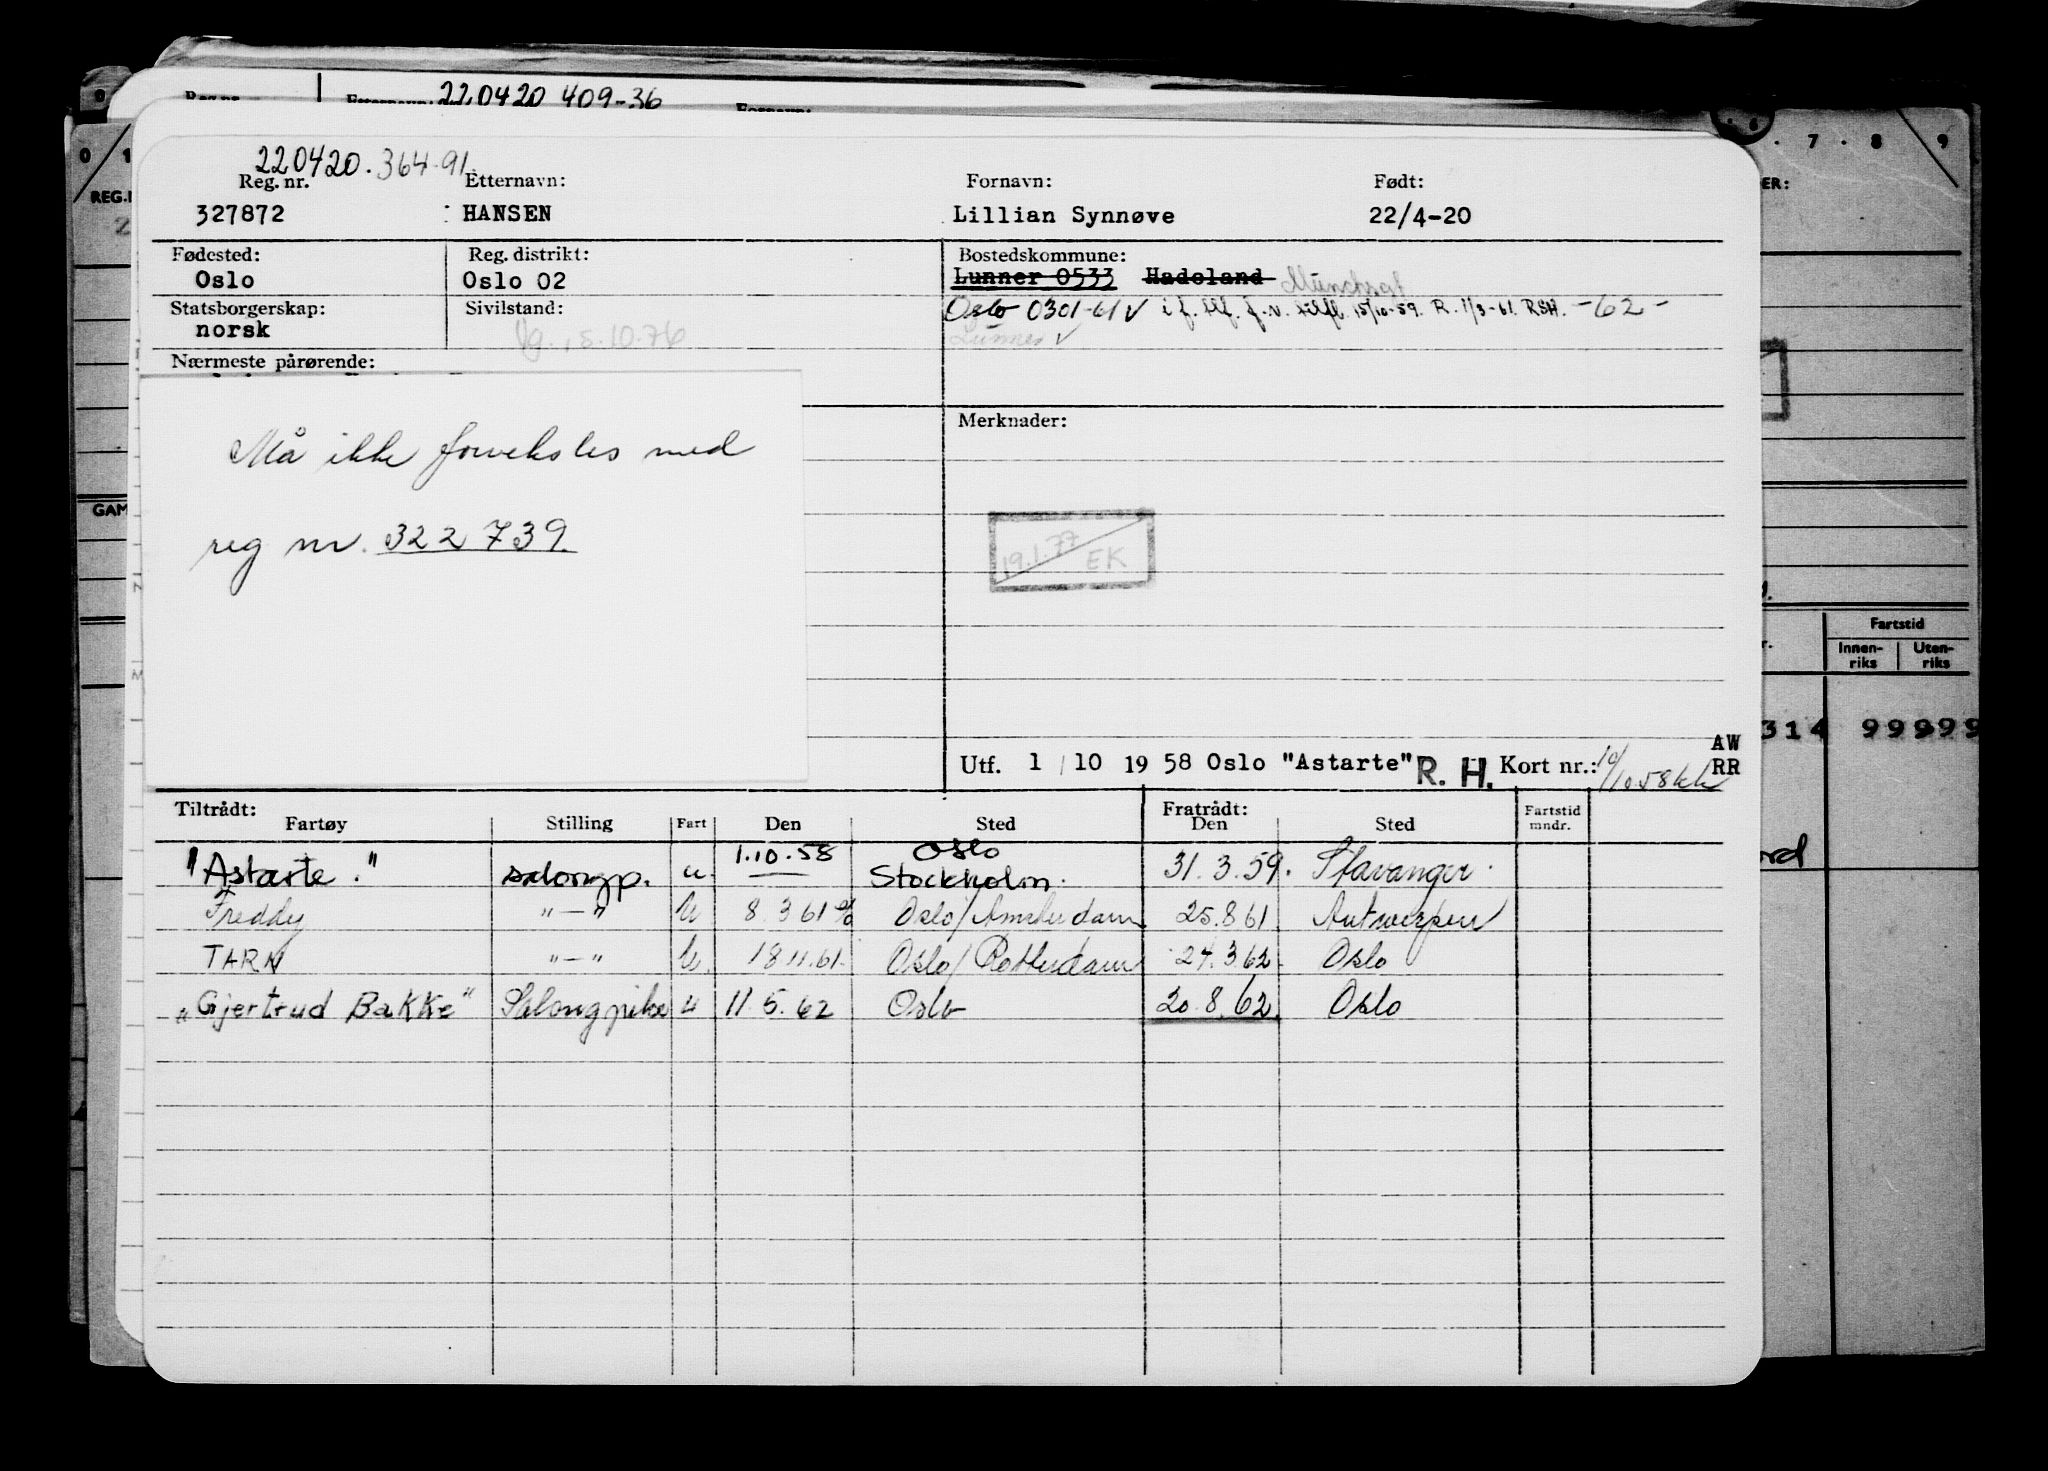 22 04 20 409-36
220420.364-91
Reg. nr. Etternavn: Fornavn: Født:
327872 HANSEN Lillian Synnøve 22/4-20
Fødested: Reg. distrikt: Bostedskommune:
Oslo Oslo 02 Lunner 0533 Hadeland Munchsgt
Statsborgerskap: Sivilstand: Oslo 0301-61 V i f. flf. f.v. tilfl. 15/10-59. R. 1/3-61. RSH. -62-
norsk Vg. 15.10.76 Lunner V
Nærmeste pårørende:
Må ikke forveksles med
reg nr. 322739.
Merknader:
19.1.77 EK
Utf. 1/10 1958 Oslo "Astarte" R. H. Kort nr.: AW RR
Tiltrådt: Fratrådt:
Fartøy Stilling Fart Den Sted Den Sted Fartstid mndr.
"Astarte." salongp. u. 1.10.58 Oslo Stockholm. 31.3.59. Stavanger.
Freddy "—" U 8.3 61 Oslo/Amsterdam 25.8.61 Antwerpen
TARN "—" U. 18.11.61. Oslo/Rotterdam 27.3.62 Oslo
„Gjertrud Bakke" Salongpike u 11.5.62 Oslo 20.8.62. Oslo
0 1
REG.
GAM
6 . 7 . 8 . 9
ER:
Fartstid
Innen-riks Uten-riks
314 99999